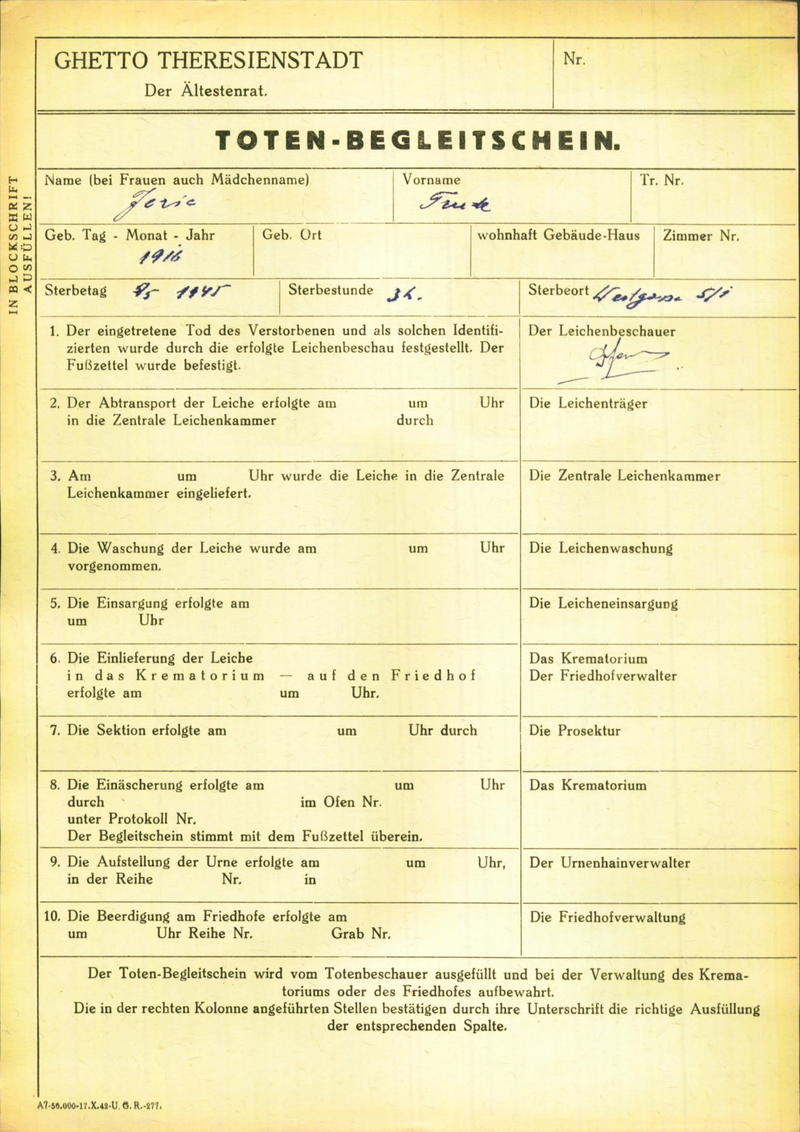 GHETTO THERESIENSTADT
Der Ältestenrat.
Nr.
TOTEN-BEGLEITSCHEIN.
IN BLOCKSCHRIFT
AUSFÜLLEN!
Name (bei Frauen auch Mädchenname) Vorname Tr. Nr.
Geb. Tag - Monat - Jahr Geb. Ort wohnhaft Gebäude-Haus Zimmer Nr.
1916
Sterbetag 9/5 1945 Sterbestunde Sterbeort
1. Der eingetretene Tod des Verstorbenen und als solchen Identifi-
zierten wurde durch die erfolgte Leichenbeschau festgestellt. Der
Fußzettel wurde befestigt.
Der Leichenbeschauer
2. Der Abtransport der Leiche erfolgte am um Uhr
in die Zentrale Leichenkammer durch
Die Leichenträger
3. Am um Uhr wurde die Leiche in die Zentrale
Leichenkammer eingeliefert.
Die Zentrale Leichenkammer
4. Die Waschung der Leiche wurde am um Uhr
vorgenommen.
Die Leichenwaschung
5. Die Einsargung erfolgte am
um Uhr
Die Leicheneinsargung
6. Die Einlieferung der Leiche
in das Krematorium — auf den Friedhof
erfolgte am um Uhr.
Das Krematorium
Der Friedhofverwalter
7. Die Sektion erfolgte am um Uhr durch
Die Prosektur
8. Die Einäscherung erfolgte am um Uhr
durch im Ofen Nr.
unter Protokoll Nr.
Der Begleitschein stimmt mit dem Fußzettel überein.
Das Krematorium
9. Die Aufstellung der Urne erfolgte am um Uhr,
in der Reihe Nr. in
Der Urnenhainverwalter
10. Die Beerdigung am Friedhofe erfolgte am
um Uhr Reihe Nr. Grab Nr.
Die Friedhofverwaltung
Der Toten-Begleitschein wird vom Totenbeschauer ausgefüllt und bei der Verwaltung des Krema-
toriums oder des Friedhofes aufbewahrt.
Die in der rechten Kolonne angeführten Stellen bestätigen durch ihre Unterschrift die richtige Ausfüllung
der entsprechenden Spalte.
A7-50.000-17.X.42-U. G. R.-277.